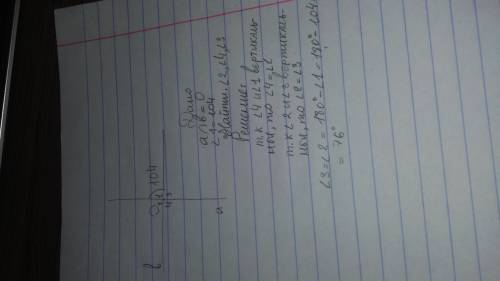 b
104
4 3
a
Дано
a∩b=O
∠1=104
Найти: ∠2,∠4,∠3
Решение:
т.к ∠4 и ∠1 вертикаль-
ны, то ∠4=∠1
т.к ∠2 и ∠3 вертикаль-
ны, то ∠2=∠3
∠3=∠2=180°-∠1=180°-104=
=76°